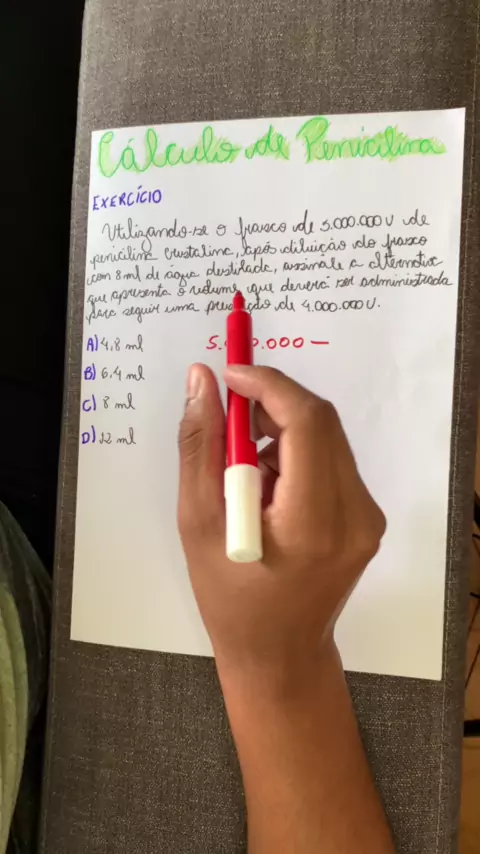 Cálculo de Penicilina
EXERCÍCIO
Utilizando-se o frasco de 5.000.000 U de
penicilina cristalina, após diluição do frasco
com 8 ml de água destilada, assinale a alternativa
que apresenta o volume que deverá ser administrada
para seguir uma de 4.000.000 U.
A) 4,8 ml
B) 6,4 ml
C) 8 ml
D) 12 ml
5. 0.000 —